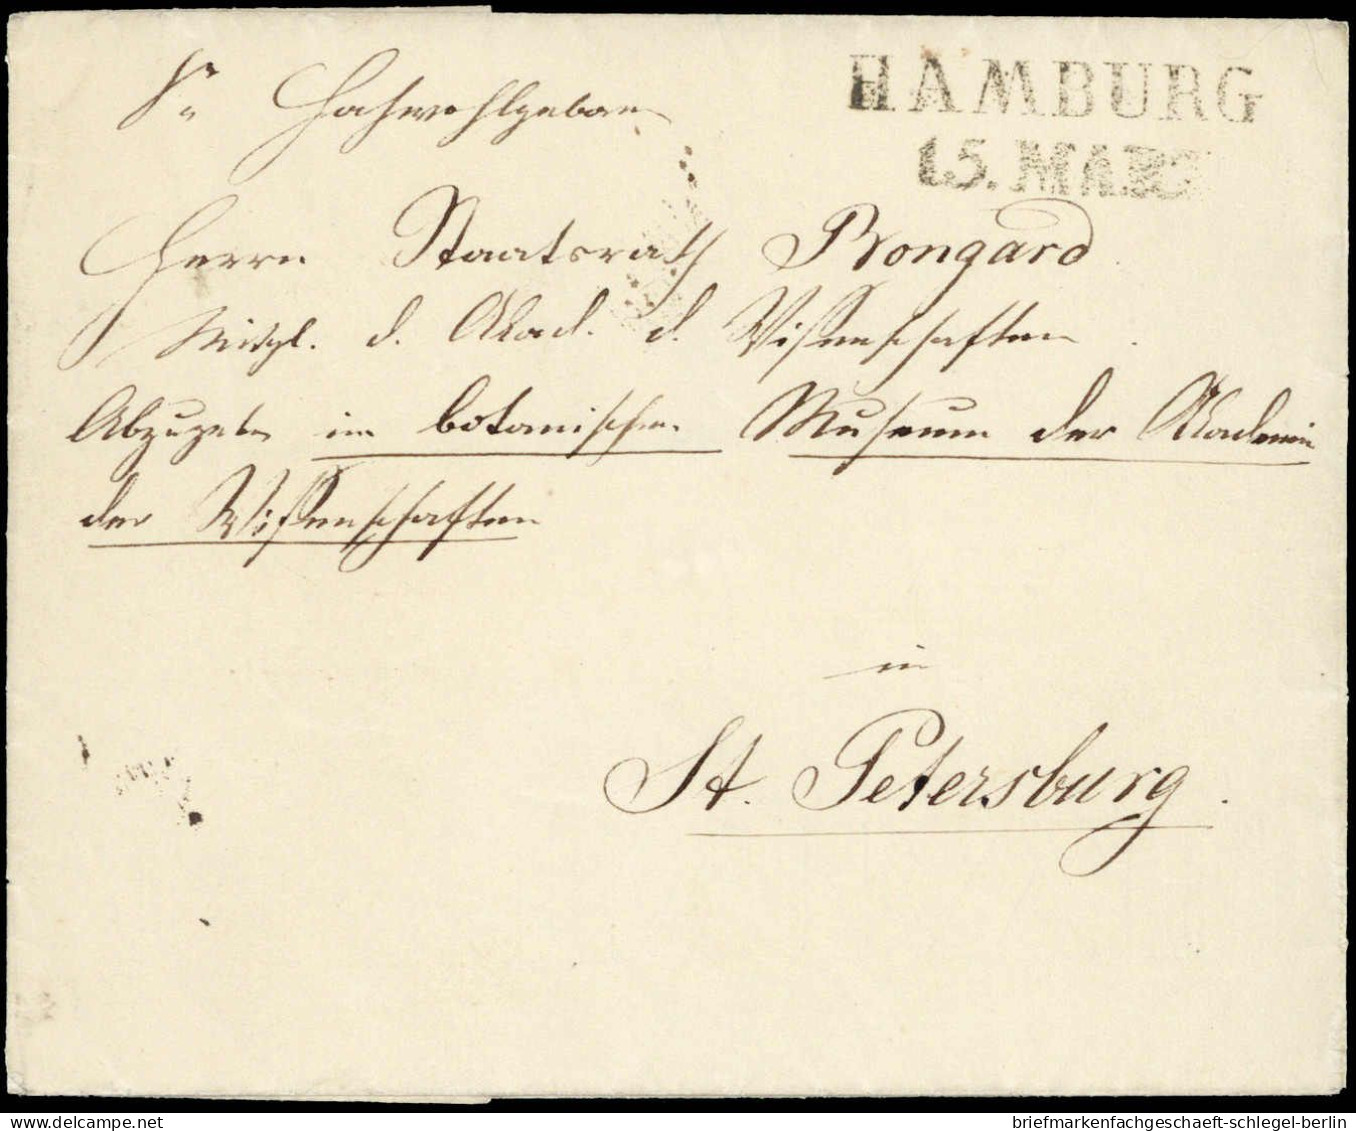 Sr Hochwohlgeboren
HAMBURG
15. MÄRZ
Herrn Staatsrath Bongard
Mitgl. d. Akad. d. Wissenschaften
Abzugeben im botanischen Museum der Akademie
der Wissenschaften
in
St. Petersburg.
briefmarkenfachgeschaeft-schlegel-berlin